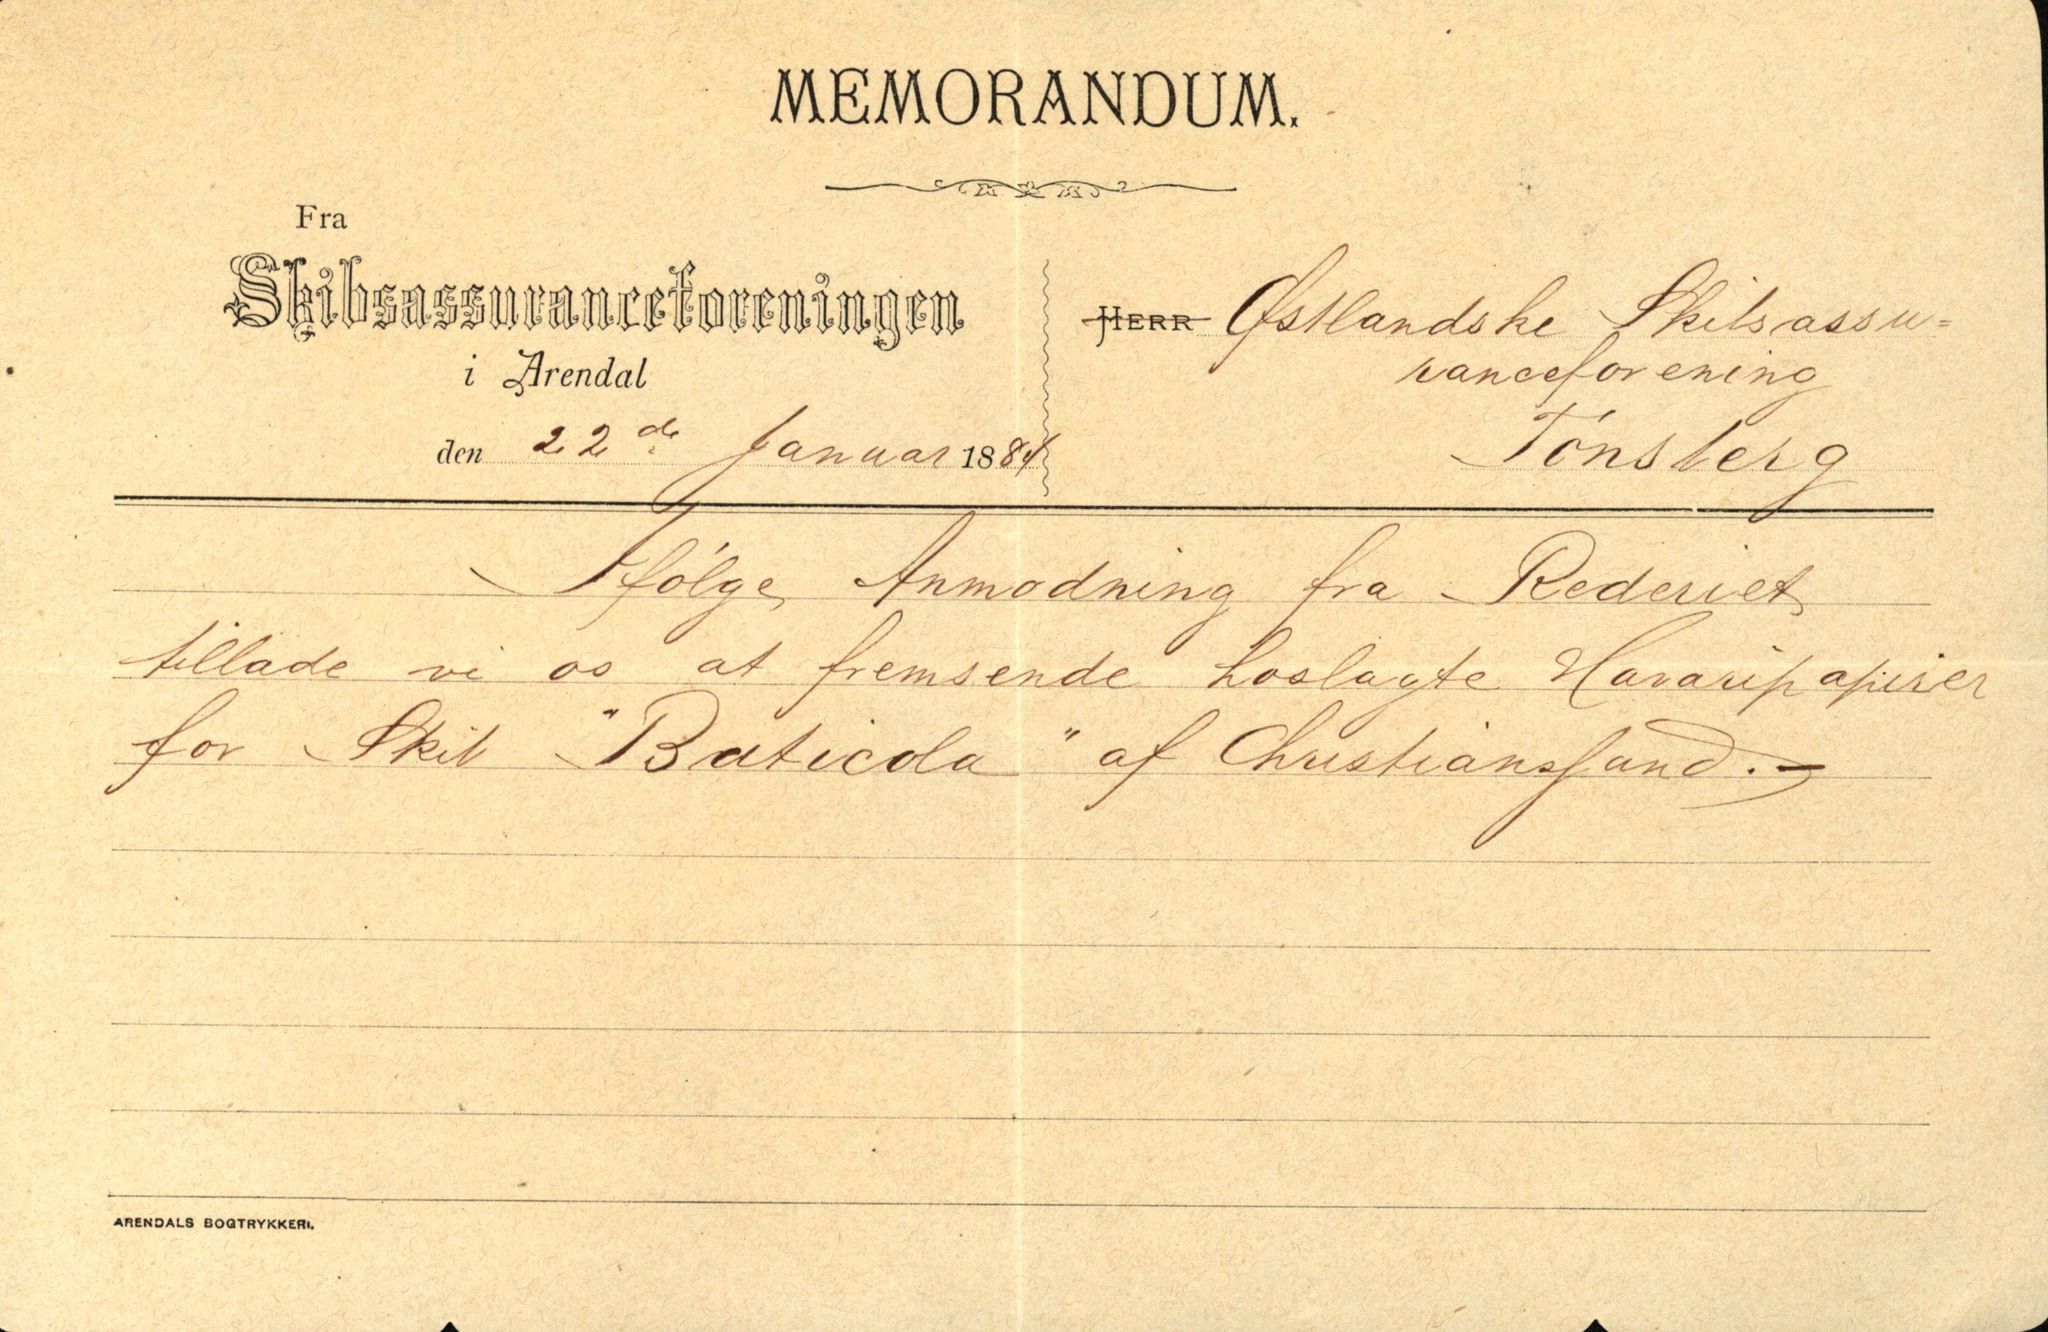 MEMORANDUM.
Fra
Skibsassuranceforeningen
i Arendal
den 22de Januar 1884
HERR Østlandske Skibsassu=
ranceforening
Tönsberg
Ifölge Anmodning fra Rederiet
tillade vi os at fremsende hoslagte Havaripapirer
for Skib "Baticola" af Christianssand.-
ARENDALS BOGTRYKKERI.